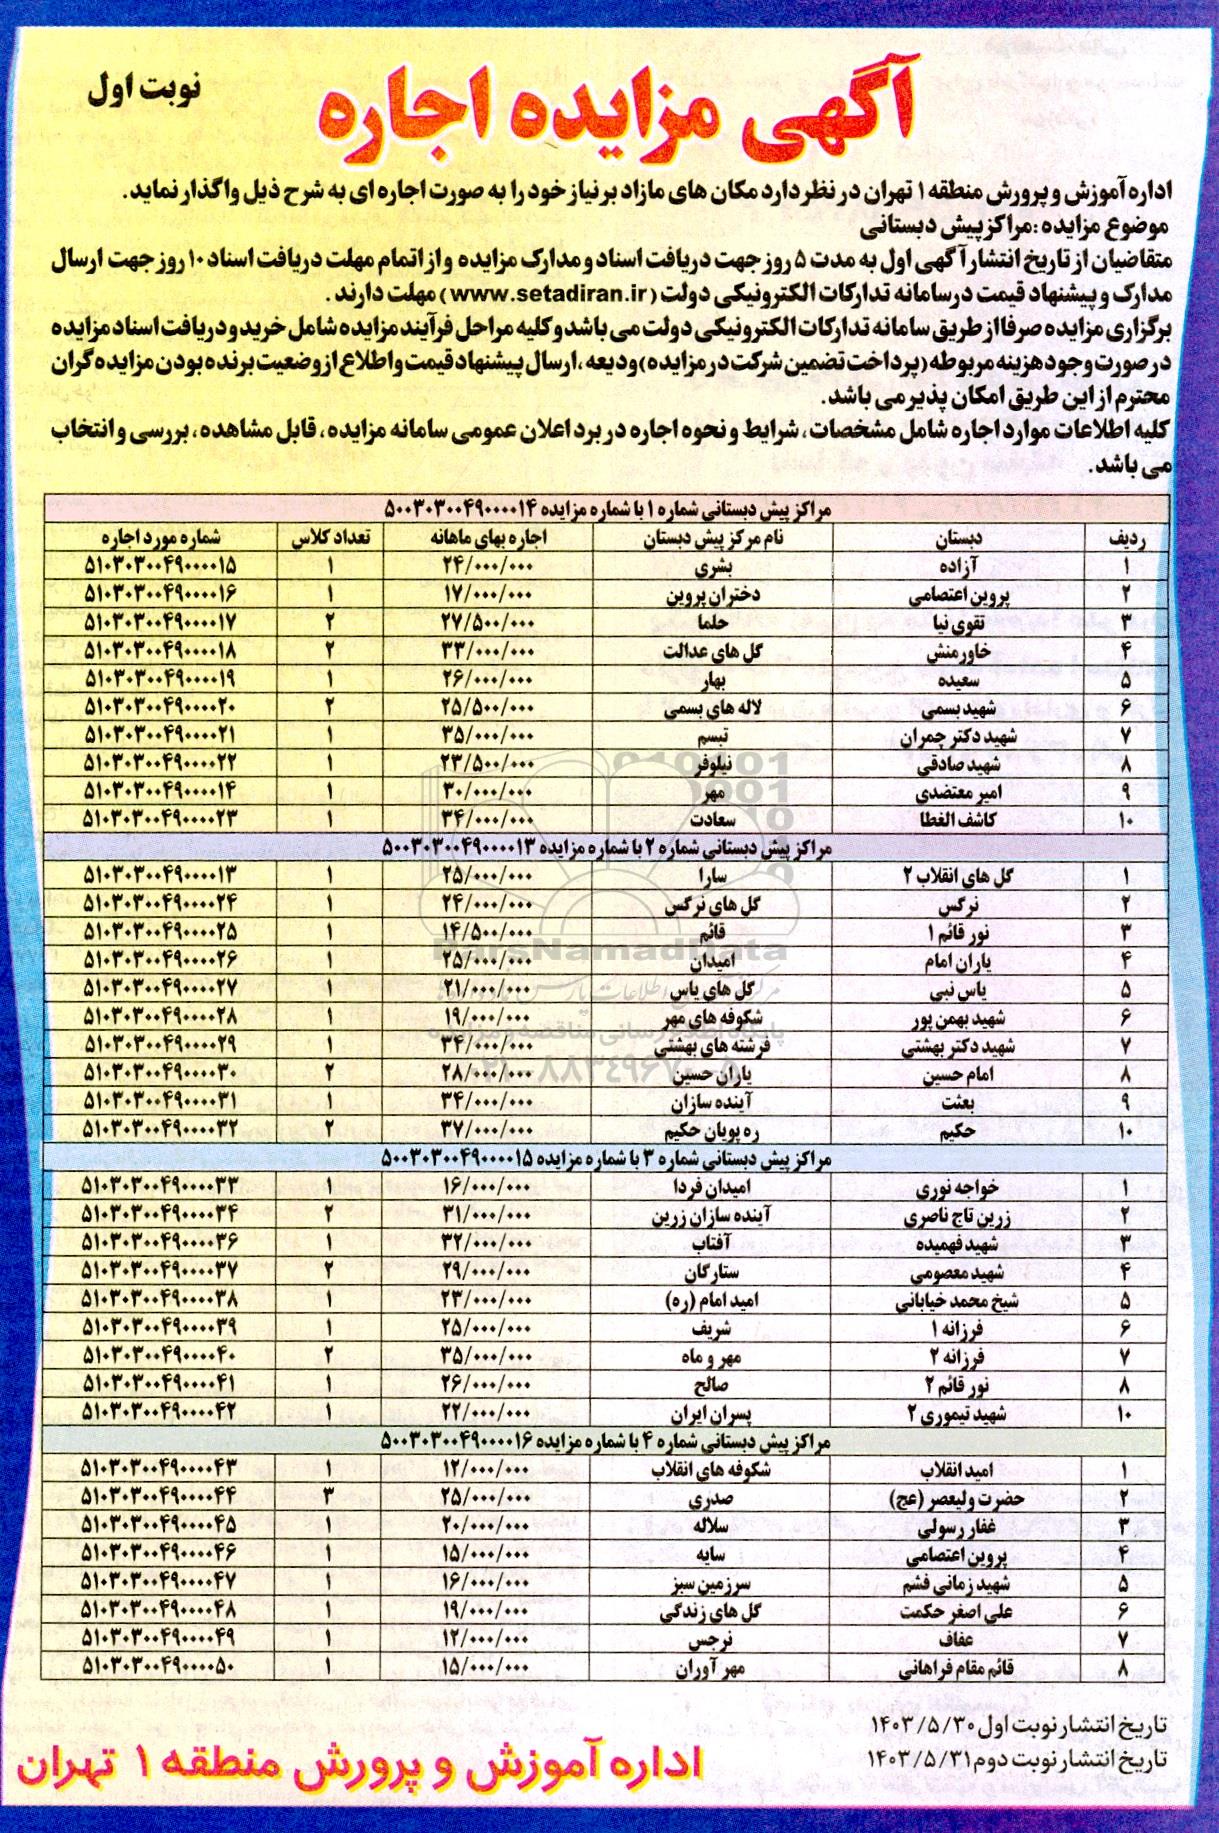 نوبت اول
آگهی مزایده اجاره
اداره آموزش و پرورش منطقه ۱ تهران در نظر دارد مکان های مازاد بر نیاز خود را به صورت اجاره ای به شرح ذیل واگذار نماید.
موضوع مزایده :مراکز پیش دبستانی
متقاضیان از تاریخ انتشار آگهی اول به مدت ۵ روز جهت دریافت اسناد و مدارک مزایده و از اتمام مهلت دریافت اسناد ۱۰ روز جهت ارسال
مدارک و پیشنهاد قیمت در سامانه تدارکات الکترونیکی دولت (www.setadiran.ir) مهلت دارند .
برگزاری مزایده صرفا از طریق سامانه تدارکات الکترونیکی دولت می باشد و کلیه مراحل فرآیند مزایده شامل خرید و دریافت اسناد مزایده
در صورت وجود هزینه مربوطه (پرداخت تضمین شرکت در مزایده) ودیعه ،ارسال پیشنهاد قیمت و اطلاع از وضعیت برنده بودن مزایده گران
محترم از این طریق امکان پذیر می باشد.
کلیه اطلاعات موارد اجاره شامل مشخصات، شرایط و نحوه اجاره در برد اعلان عمومی سامانه مزایده، قابل مشاهده، بررسی و انتخاب
می باشد.
مراکز پیش دبستانی شماره ۱ با شماره مزایده ۵۰۰۳۰۳۰۰۴۹۰۰۰۰۱۴
ردیف دبستان نام مرکز پیش دبستان اجاره بهای ماهانه تعداد کلاس شماره مورد اجاره
۱ آزاده بشری ۲۴/۰۰۰/۰۰۰ ۱ ۵۱۰۳۰۳۰۰۴۹۰۰۰۰۱۵
۲ پروین اعتصامی دختران پروین ۱۷/۰۰۰/۰۰۰ ۱ ۵۱۰۳۰۳۰۰۴۹۰۰۰۰۱۶
۳ تقوی نیا حلما ۲۷/۵۰۰/۰۰۰ ۲ ۵۱۰۳۰۳۰۰۴۹۰۰۰۰۱۷
۴ خاورمنش گل های عدالت ۳۳/۰۰۰/۰۰۰ ۲ ۵۱۰۳۰۳۰۰۴۹۰۰۰۰۱۸
۵ سعیده بهار ۲۶/۰۰۰/۰۰۰ ۱ ۵۱۰۳۰۳۰۰۴۹۰۰۰۰۱۹
۶ شهید بسمی لاله های بسمی ۲۵/۵۰۰/۰۰۰ ۲ ۵۱۰۳۰۳۰۰۴۹۰۰۰۰۲۰
۷ شهید دکتر چمران تبسم ۳۵/۰۰۰/۰۰۰ ۱ ۵۱۰۳۰۳۰۰۴۹۰۰۰۰۲۱
۸ شهید صادقی نیلوفر ۲۳/۵۰۰/۰۰۰ ۱ ۵۱۰۳۰۳۰۰۴۹۰۰۰۰۲۲
۹ امیر معتضدی مهر ۳۰/۰۰۰/۰۰۰ ۱ ۵۱۰۳۰۳۰۰۴۹۰۰۰۰۱۴
۱۰ کاشف الغطا سعادت ۳۴/۰۰۰/۰۰۰ ۱ ۵۱۰۳۰۳۰۰۴۹۰۰۰۰۲۳
مراکز پیش دبستانی شماره ۲ با شماره مزایده ۵۰۰۳۰۳۰۰۴۹۰۰۰۰۱۳
۱ گل های انقلاب ۲ سارا ۲۵/۰۰۰/۰۰۰ ۱ ۵۱۰۳۰۳۰۰۴۹۰۰۰۰۱۳
۲ نرگس گل های نرگس ۲۴/۰۰۰/۰۰۰ ۱ ۵۱۰۳۰۳۰۰۴۹۰۰۰۰۲۴
۳ نور قائم ۱ قائم ۱۴/۵۰۰/۰۰۰ ۱ ۵۱۰۳۰۳۰۰۴۹۰۰۰۰۲۵
۴ یاران امام امیدان ۲۵/۰۰۰/۰۰۰ ۱ ۵۱۰۳۰۳۰۰۴۹۰۰۰۰۲۶
۵ یاس نبی گل های یاس ۲۱/۰۰۰/۰۰۰ ۱ ۵۱۰۳۰۳۰۰۴۹۰۰۰۰۲۷
۶ شهید بهمن پور شکوفه های مهر ۱۹/۰۰۰/۰۰۰ ۱ ۵۱۰۳۰۳۰۰۴۹۰۰۰۰۲۸
۷ شهید دکتر بهشتی فرشته های بهشتی ۳۴/۰۰۰/۰۰۰ ۱ ۵۱۰۳۰۳۰۰۴۹۰۰۰۰۲۹
۸ امام حسین یاران حسین ۲۸/۰۰۰/۰۰۰ ۲ ۵۱۰۳۰۳۰۰۴۹۰۰۰۰۳۰
۹ بعثت آینده سازان ۳۴/۰۰۰/۰۰۰ ۱ ۵۱۰۳۰۳۰۰۴۹۰۰۰۰۳۱
۱۰ حکیم ره پویان حکیم ۳۷/۰۰۰/۰۰۰ ۲ ۵۱۰۳۰۳۰۰۴۹۰۰۰۰۳۲
مراکز پیش دبستانی شماره ۳ با شماره مزایده ۵۰۰۳۰۳۰۰۴۹۰۰۰۰۱۵
۱ خواجه نوری امیدان فردا ۱۶/۰۰۰/۰۰۰ ۱ ۵۱۰۳۰۳۰۰۴۹۰۰۰۰۳۳
۲ زرین تاج ناصری آینده سازان زرین ۳۱/۰۰۰/۰۰۰ ۲ ۵۱۰۳۰۳۰۰۴۹۰۰۰۰۳۴
۳ شهید فهمیده آفتاب ۳۲/۰۰۰/۰۰۰ ۱ ۵۱۰۳۰۳۰۰۴۹۰۰۰۰۳۶
۴ شهید معصومی ستارگان ۲۹/۰۰۰/۰۰۰ ۲ ۵۱۰۳۰۳۰۰۴۹۰۰۰۰۳۷
۵ شیخ محمد خیابانی امید امام (ره) ۲۳/۰۰۰/۰۰۰ ۱ ۵۱۰۳۰۳۰۰۴۹۰۰۰۰۳۸
۶ فرزانه ۱ شریف ۲۵/۰۰۰/۰۰۰ ۱ ۵۱۰۳۰۳۰۰۴۹۰۰۰۰۳۹
۷ فرزانه ۲ مهر و ماه ۳۵/۰۰۰/۰۰۰ ۲ ۵۱۰۳۰۳۰۰۴۹۰۰۰۰۴۰
۸ نور قائم ۲ صالح ۲۶/۰۰۰/۰۰۰ ۱ ۵۱۰۳۰۳۰۰۴۹۰۰۰۰۴۱
۱۰ شهید تیموری ۲ پسران ایران ۲۲/۰۰۰/۰۰۰ ۱ ۵۱۰۳۰۳۰۰۴۹۰۰۰۰۴۲
مراکز پیش دبستانی شماره ۴ با شماره مزایده ۵۰۰۳۰۳۰۰۴۹۰۰۰۰۱۶
۱ امید انقلاب شکوفه های انقلاب ۱۲/۰۰۰/۰۰۰ ۱ ۵۱۰۳۰۳۰۰۴۹۰۰۰۰۴۳
۲ حضرت ولیعصر (عج) صدری ۲۵/۰۰۰/۰۰۰ ۳ ۵۱۰۳۰۳۰۰۴۹۰۰۰۰۴۴
۳ غفار رسولی سلاله ۲۰/۰۰۰/۰۰۰ ۱ ۵۱۰۳۰۳۰۰۴۹۰۰۰۰۴۵
۴ پروین اعتصامی سایه ۱۵/۰۰۰/۰۰۰ ۱ ۵۱۰۳۰۳۰۰۴۹۰۰۰۰۴۶
۵ شهید زمانی فشم سرزمین سبز ۱۶/۰۰۰/۰۰۰ ۱ ۵۱۰۳۰۳۰۰۴۹۰۰۰۰۴۷
۶ علی اصغر حکمت گل های زندگی ۱۹/۰۰۰/۰۰۰ ۱ ۵۱۰۳۰۳۰۰۴۹۰۰۰۰۴۸
۷ عفاف نرجس ۱۲/۰۰۰/۰۰۰ ۱ ۵۱۰۳۰۳۰۰۴۹۰۰۰۰۴۹
۸ قائم مقام فراهانی مهر آوران ۱۵/۰۰۰/۰۰۰ ۱ ۵۱۰۳۰۳۰۰۴۹۰۰۰۰۵۰
ParsNamadData
پایگاه اطلاع رسانی مناقصه و مزایده
تاریخ انتشار نوبت اول ۱۴۰۳/۵/۳۰
تاریخ انتشار نوبت دوم ۱۴۰۳/۵/۳۱
اداره آموزش و پرورش منطقه ۱ تهران